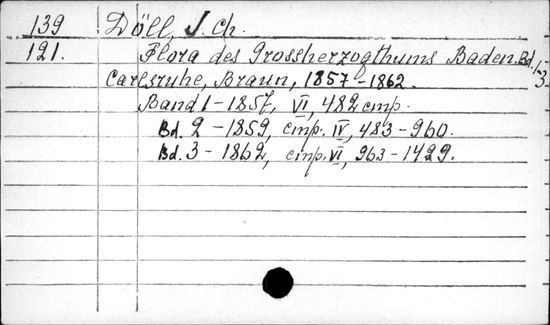 139 Döll, J. Ch.
121. Flora des Grossherzogthums Baden. Bd. 1-3
Carlsruhe, Braun, 1857-1862.
Band 1-1857, VI, 482 стр.
Bd. 2-1859, стр. IV, 483-960.
Bd. 3-1862, стр. VI, 963-1429.